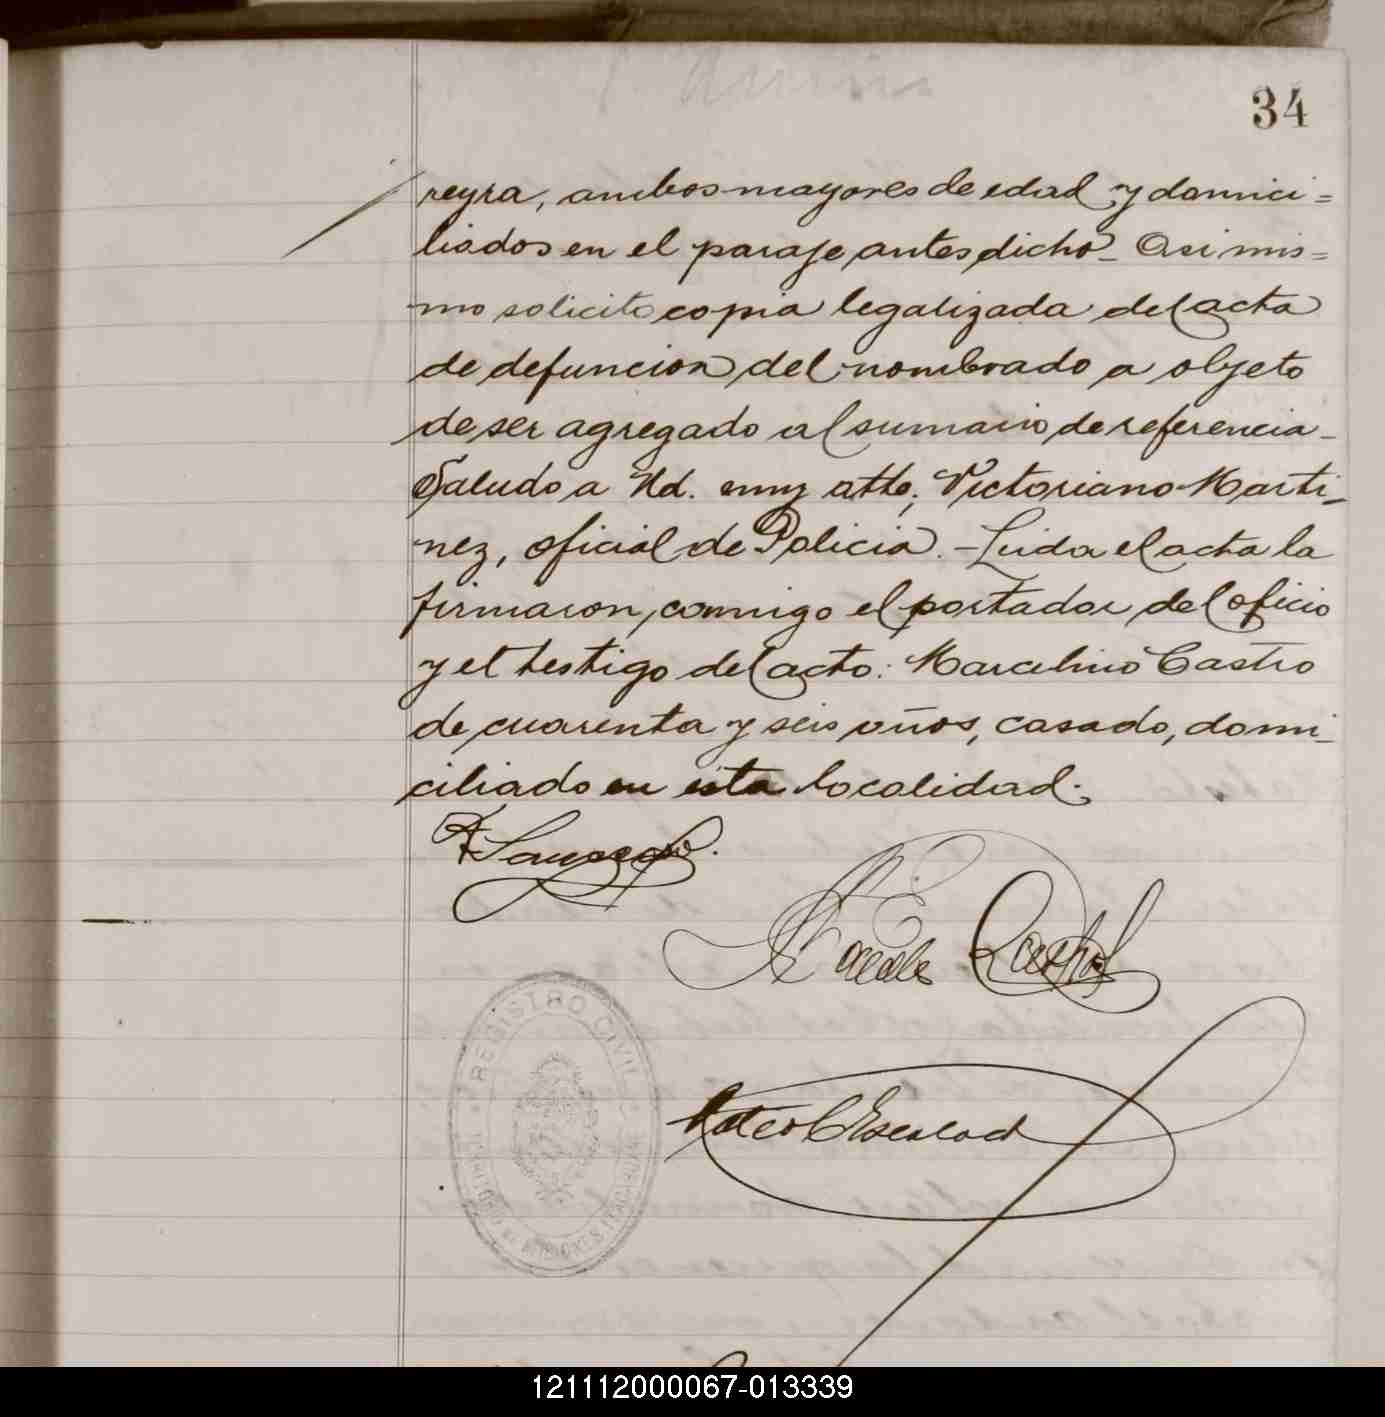 34
reyra, ambos mayores de edad y domici=
liados en el paraje antes dicho_ Asi mis=
mo solicito copia legalizada del acta
de defuncion del nombrado a objeto
de ser agregado al sumario de referencia_
Saludo a Ud. muy atto; Victoriano Marti_
nez, oficial de Policia. - Leida el acta la
firmaron, conmigo el portador del oficio
y el testigo del acto: Marcelino Castro
de cuarenta y seis años, casado, domi_
ciliado en esta localidad.
Castro
REGISTRO CIVIL
121112000067-013339